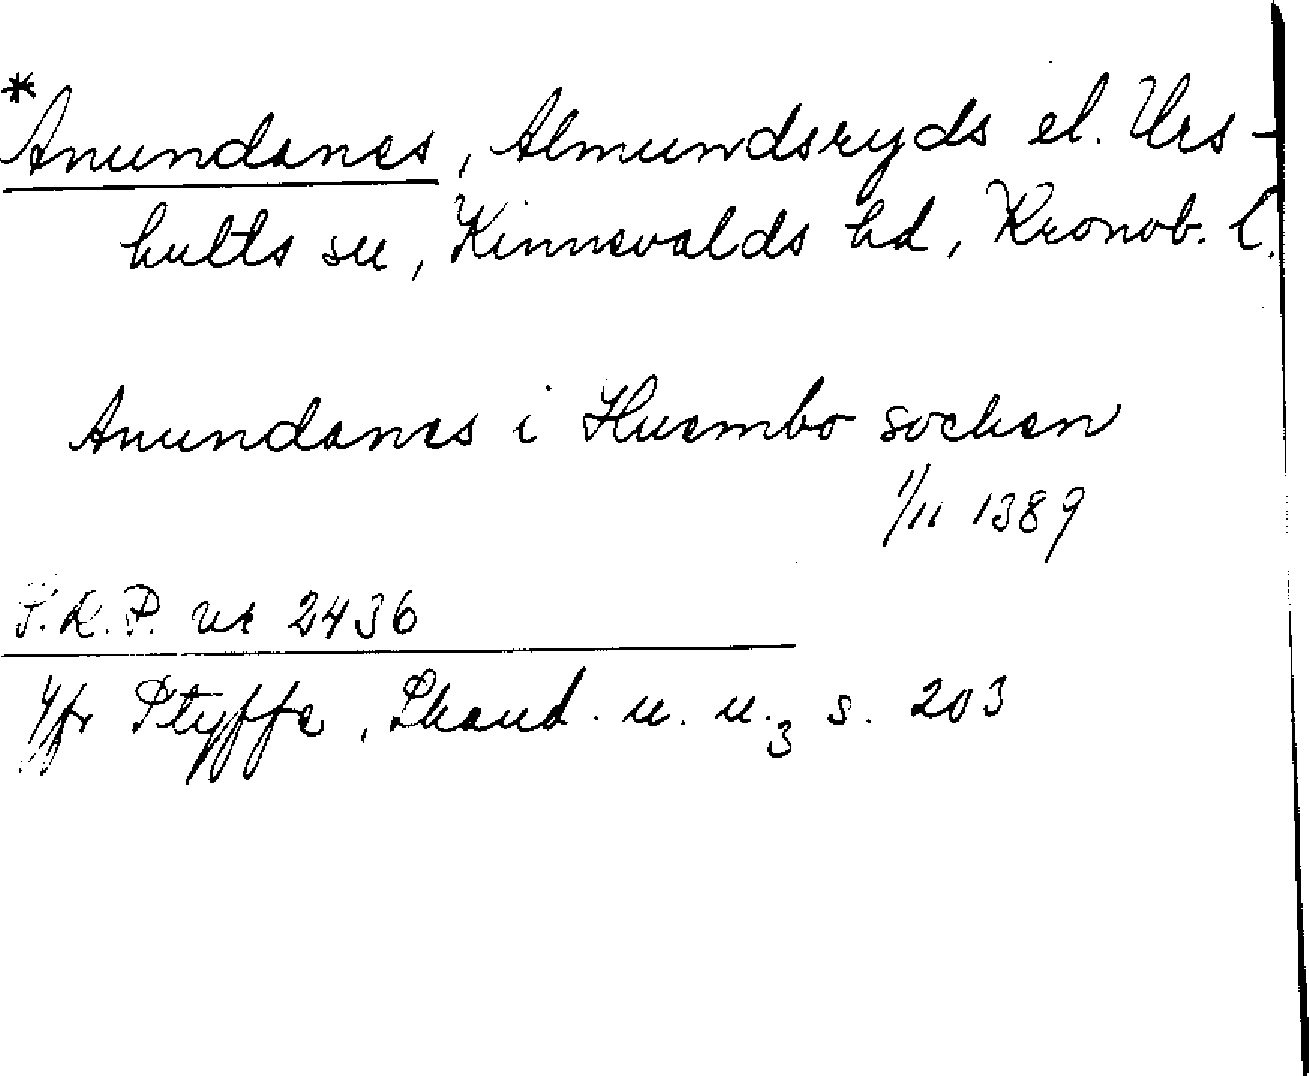 *Anundanes, Almundsryds el. Urs-
hults sn, Kinnevalds hd, Kronob. l.
Anundanes i Huembo socken
1/11 1389
S.R.P. nr 2436
Jfr Styffe, Skand. u. u.3 s. 203